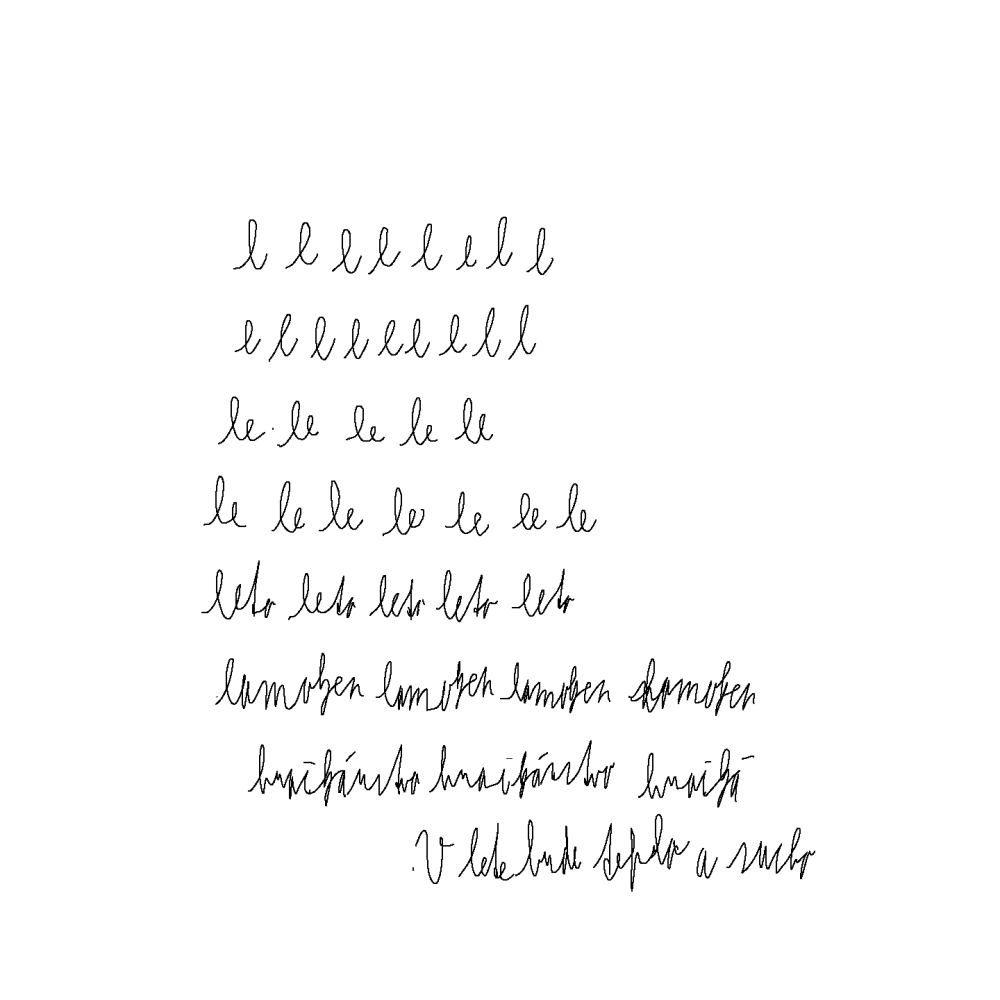 l l l l l l l l
l l l l l l l l l
le le le le le
le le le le le le le
leto leto leto leto leto
lamoken lamoken lamoken lamoken
hračkárstvo hračkárstvo hračká
V lete bude teplo a sucho